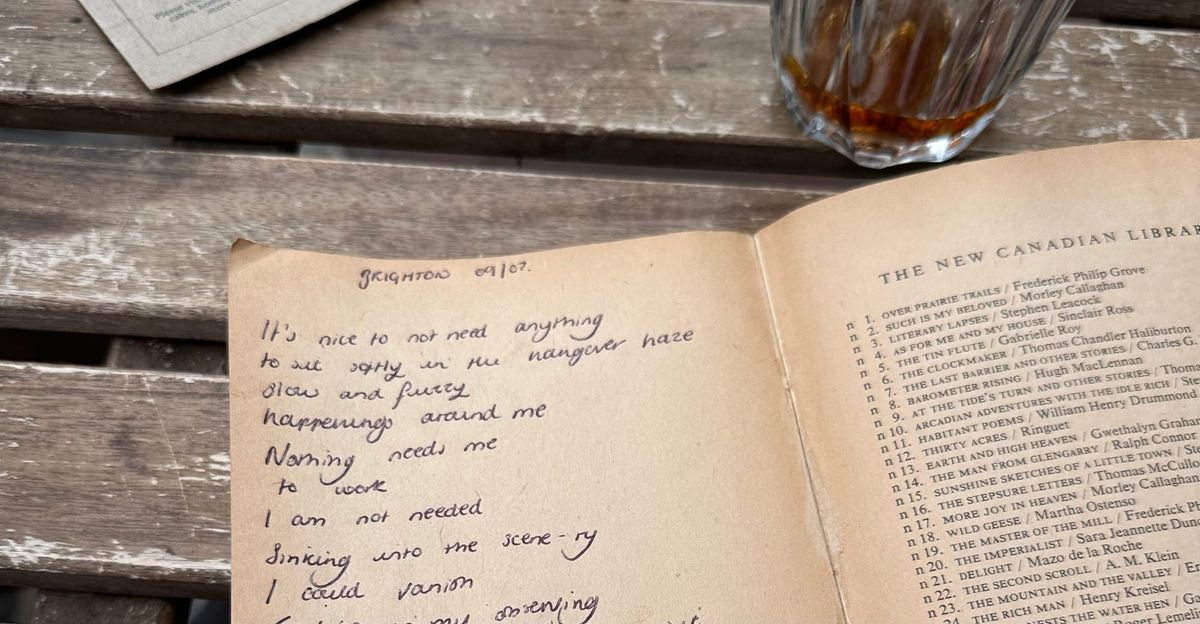 Please
BRIGHTON 09/07.
It's nice to not need anything
to sit softly in the hangover haze
slow and fuzzy
happenings around me
Nothing needs me
to work
I am not needed
Sinking into the scene-ry
I could vanish
my observing
THE NEW CANADIAN LIBRAR
n 1. OVER PRAIRIE TRAILS / Frederick Philip Grove
n 2. SUCH IS MY BELOVED / Morley Callaghan
n 3. LITERARY LAPSES / Stephen Leacock
n 4. AS FOR ME AND MY HOUSE / Sinclair Ross
n 5. THE TIN FLUTE / Gabrielle Roy
n 6. THE CLOCKMAKER / Thomas Chandler Haliburton
n 7. THE LAST BARRIER AND OTHER STORIES / Charles G.
n 8. BAROMETER RISING / Hugh MacLennan
n 9. AT THE TIDE'S TURN AND OTHER STORIES / Thoma
n 10. ARCADIAN ADVENTURES WITH THE IDLE RICH / Ste
n 11. HABITANT POEMS / William Henry Drummond
n 12. THIRTY ACRES / Ringuet
n 13. EARTH AND HIGH HEAVEN / Gwethalyn Graham
n 14. THE MAN FROM GLENGARRY / Ralph Connor
n 15. SUNSHINE SKETCHES OF A LITTLE TOWN / Ste
n 16. THE STEPSURE LETTERS / Thomas McCull
n 17. MORE JOY IN HEAVEN / Morley Callaghan
n 18. WILD GEESE / Martha Ostenso
n 19. THE MASTER OF THE MILL / Frederick Ph
n 20. THE IMPERIALIST / Sara Jeannette Dun
n 21. DELIGHT / Mazo de la Roche
n 22. THE SECOND SCROLL / A. M. Klein
n 23. THE MOUNTAIN AND THE VALLEY / Er
24. THE RICH MAN / Henry Kreisel
NESTS THE WATER HEN / Ga
Roger Lemelin